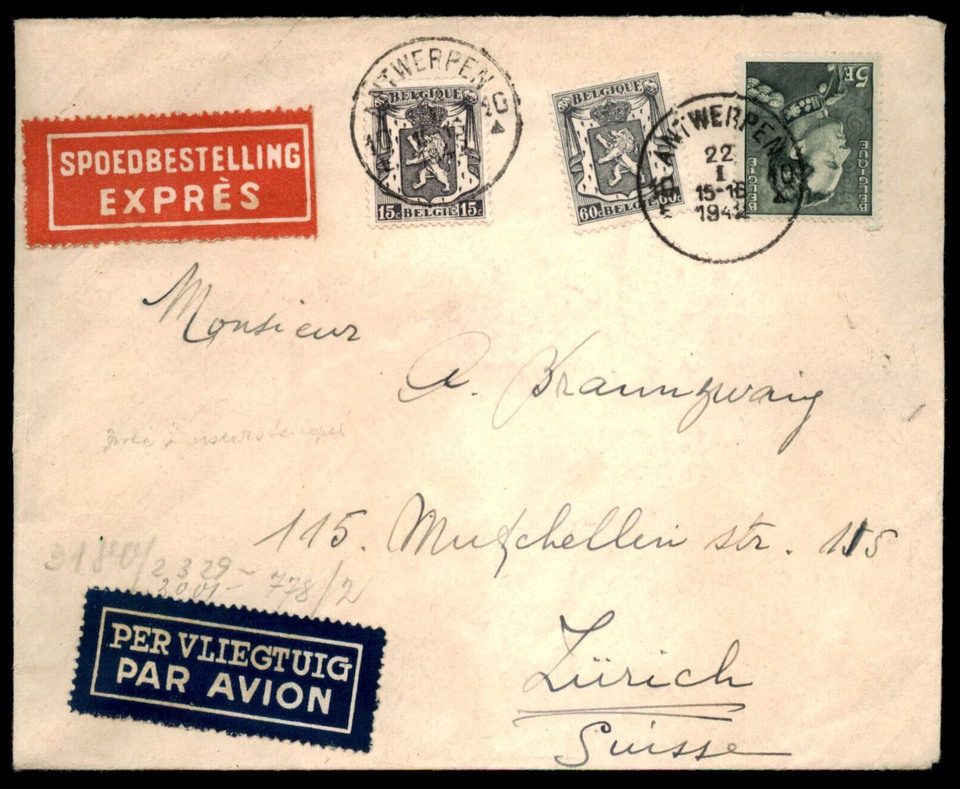 SPOEDBESTELLING
EXPRÈS
ANTWERPEN
BELGIQUE
15c BELGIË 15c
BELGIQUE
60c BELGIË 60c
ANTWERPEN
22
I
15-16
1942
10
5F
BELGIQUE
BELGIE
Monsieur
A. Braunzwaig
115. Mutschellin str. 115
Zürich
Suisse
3180/
2329-
2001- 778/2
PER VLIEGTUIG
PAR AVION